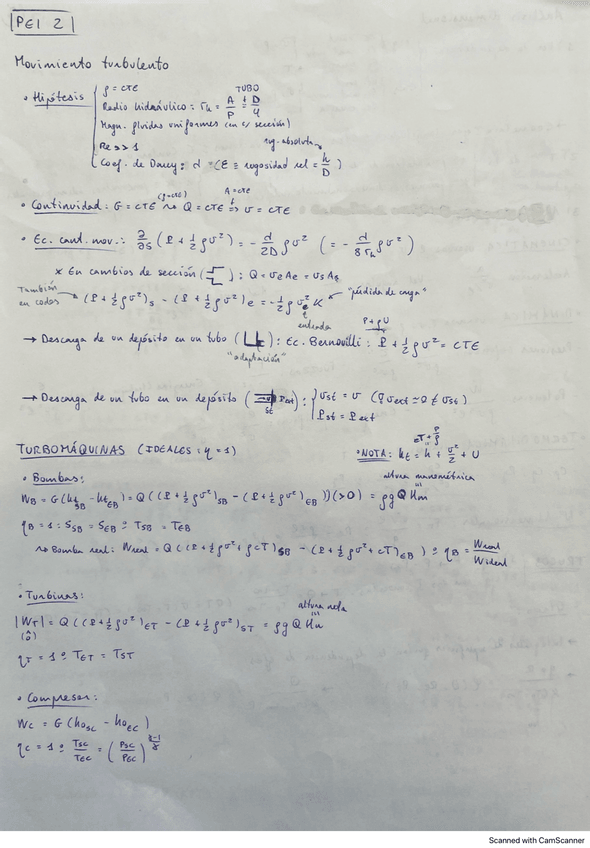 PEI 2
Movimiento turbulento
• Hipótesis { ρ = cte
Radio hidráulico: rh = A/P = D/4 (TUBO)
Magn. fluidas uniformes (en c/ sección)
Re >> 1
rug. absoluta
Coef. de Darcy: λ (ε ≡ rugosidad rel = h/D)
• Continuidad: G = CTE (ρ=cte) ⤳ Q = CTE ⇒ (A = cte) v = CTE
• Ec. cant. mov.: ∂/∂s (P + ½ρv²) = - λ/2D ρv² (= - λ/8rh ρv²)
* En cambios de sección: Q = veAe = vsAs
También en codos (P + ½ρv²)s - (P + ½ρv²)e = - ½ρve² K "pérdida de carga"
entrada
P + ρU
→ Descarga de un depósito en un tubo: Ec. Bernouilli: P + ½ρv² = CTE
"adaptación"
→ Descarga de un tubo en un depósito (st Pext): { vst = v
Pst = Pext
TURBOMÁQUINAS (IDEALES: η = 1)
• NOTA: ht = h + v²/2 + U
cT + P/ρ
• Bombas:
altura manométrica
WB = G(htSB - htEB) = Q((P + ½ρv²)SB - (P + ½ρv²)EB) (>0) = ρg Q Hm
ηB = 1: SSB = SEB ⇒ TSB = TEB
⤳ Bomba real: Wreal = Q((P + ½ρv² + ρcT)SB - (P + ½ρv² + cT)EB) ⇒ ηB = Wreal/Wideal
• Turbinas:
altura neta
|WT| = Q((P + ½ρv²)ET - (P + ½ρv²)ST = ρg Q Hn
ηT = 1 ⇒ TET = TST
• Compresor:
WC = G(hoSC - hoEC)
ηC = 1 ⇒ TSC/TEC = (PSC/PEC)^(γ-1)/γ
Scanned with CamScanner